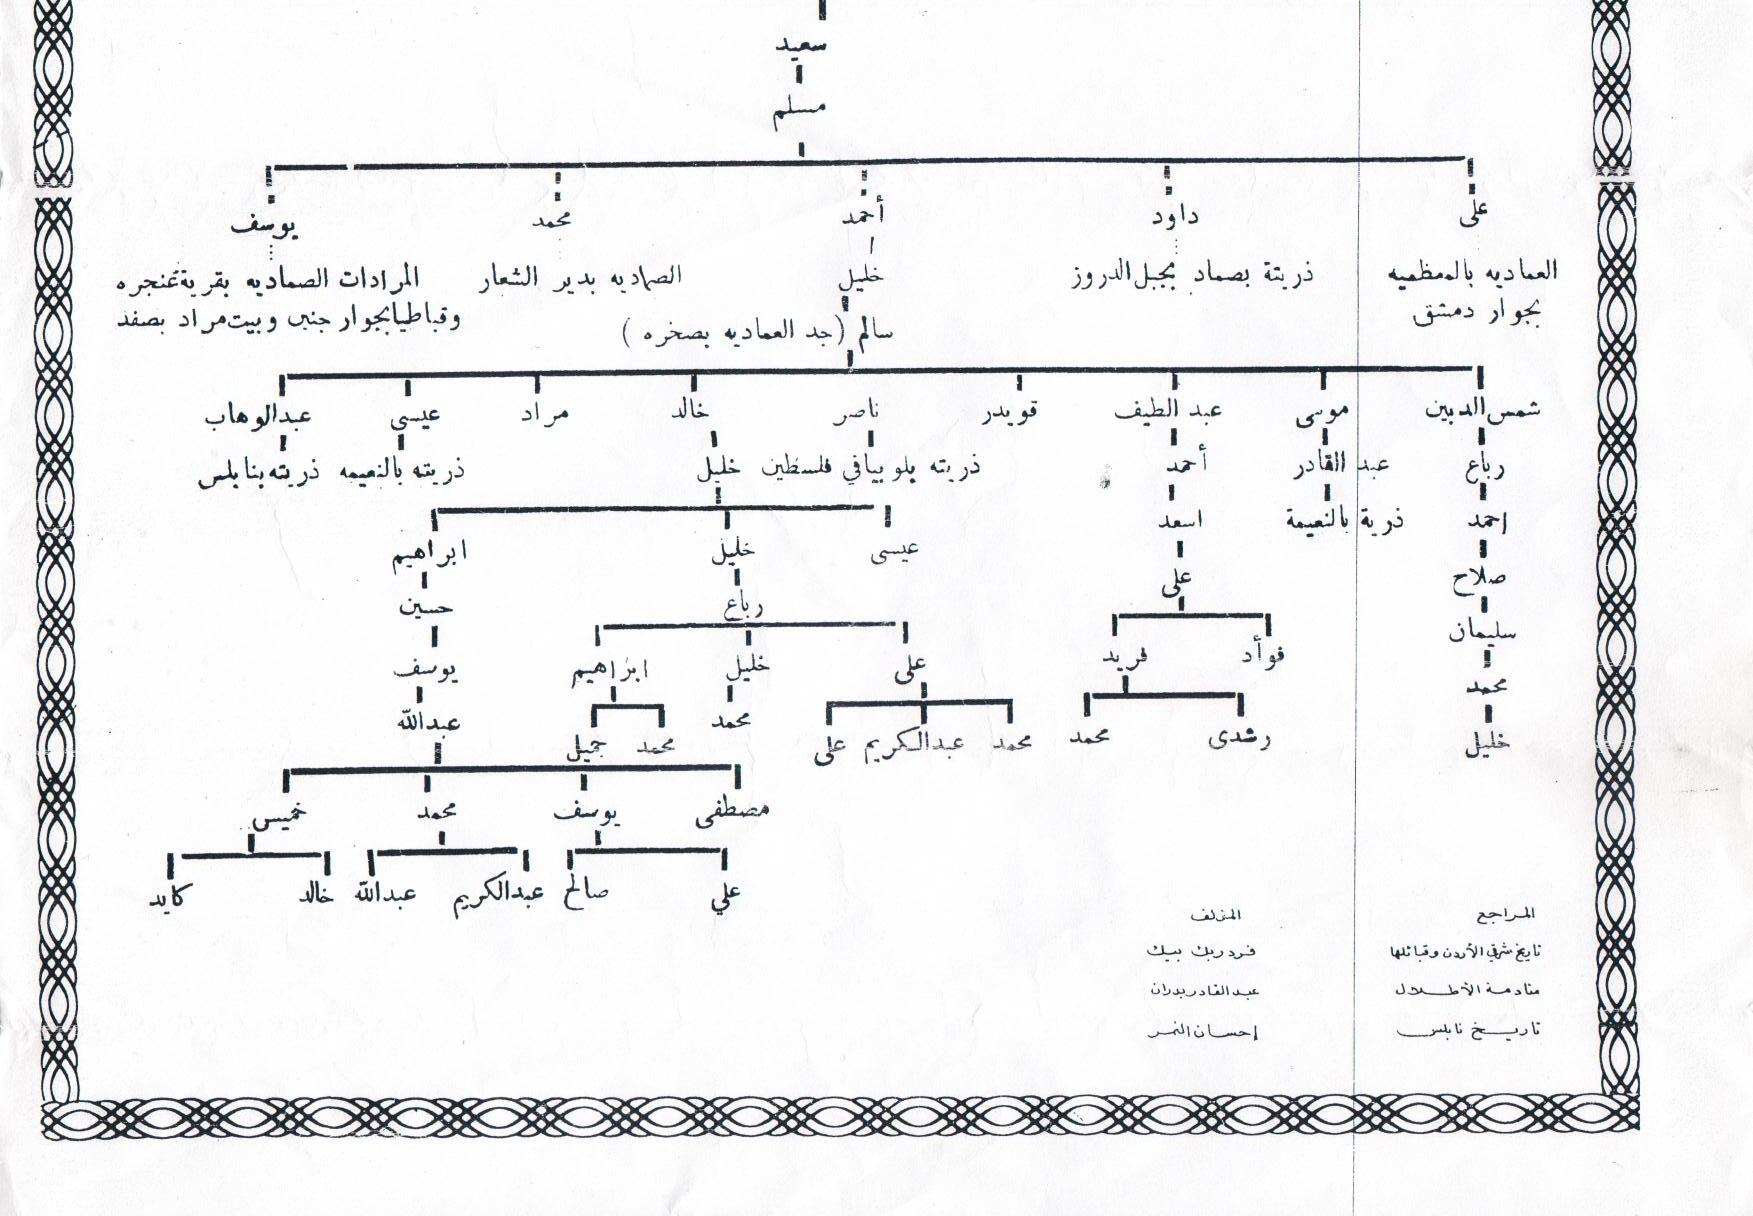 سعيد
مسلم
على داود أحمد محمد يوسف
العماديه بالمعظميه ذريتة بصماد بجبل الدروز خليل الصماديه بدير الشعار المرادات الصماديه بقرية عنجره
بجوار دمشق سالم (جد العماديه بصخره) وقباطيا بجوار جنين وبيت مراد بصفد
شمس الدبين موسى عبد الطيف قويدر ناصر خالد مراد عيسى عبدالوهاب
رباع عبد القادر أحمد ذريته بلوبيا في فلسطين خليل ذريته بالنعيمه ذريته بنابلس
احمد ذرية بالنعيمة اسعد عيسى خليل ابراهيم
صلاح على رباع حسين
سليمان فوأد فريد على خليل ابراهيم يوسف
محمد رشدى محمد محمد عبدالكريم على محمد محمد جميل عبدالله
خليل
مصطفى يوسف محمد خميس
علي صالح عبدالكريم عبدالله خالد كايد
المراجع المؤلف
تاريخ شرقي الأردن وقبائلها فردريك بيك
منادمة الأطلال عبدالقادر بدران
تاريخ نابلس إحسان النمر